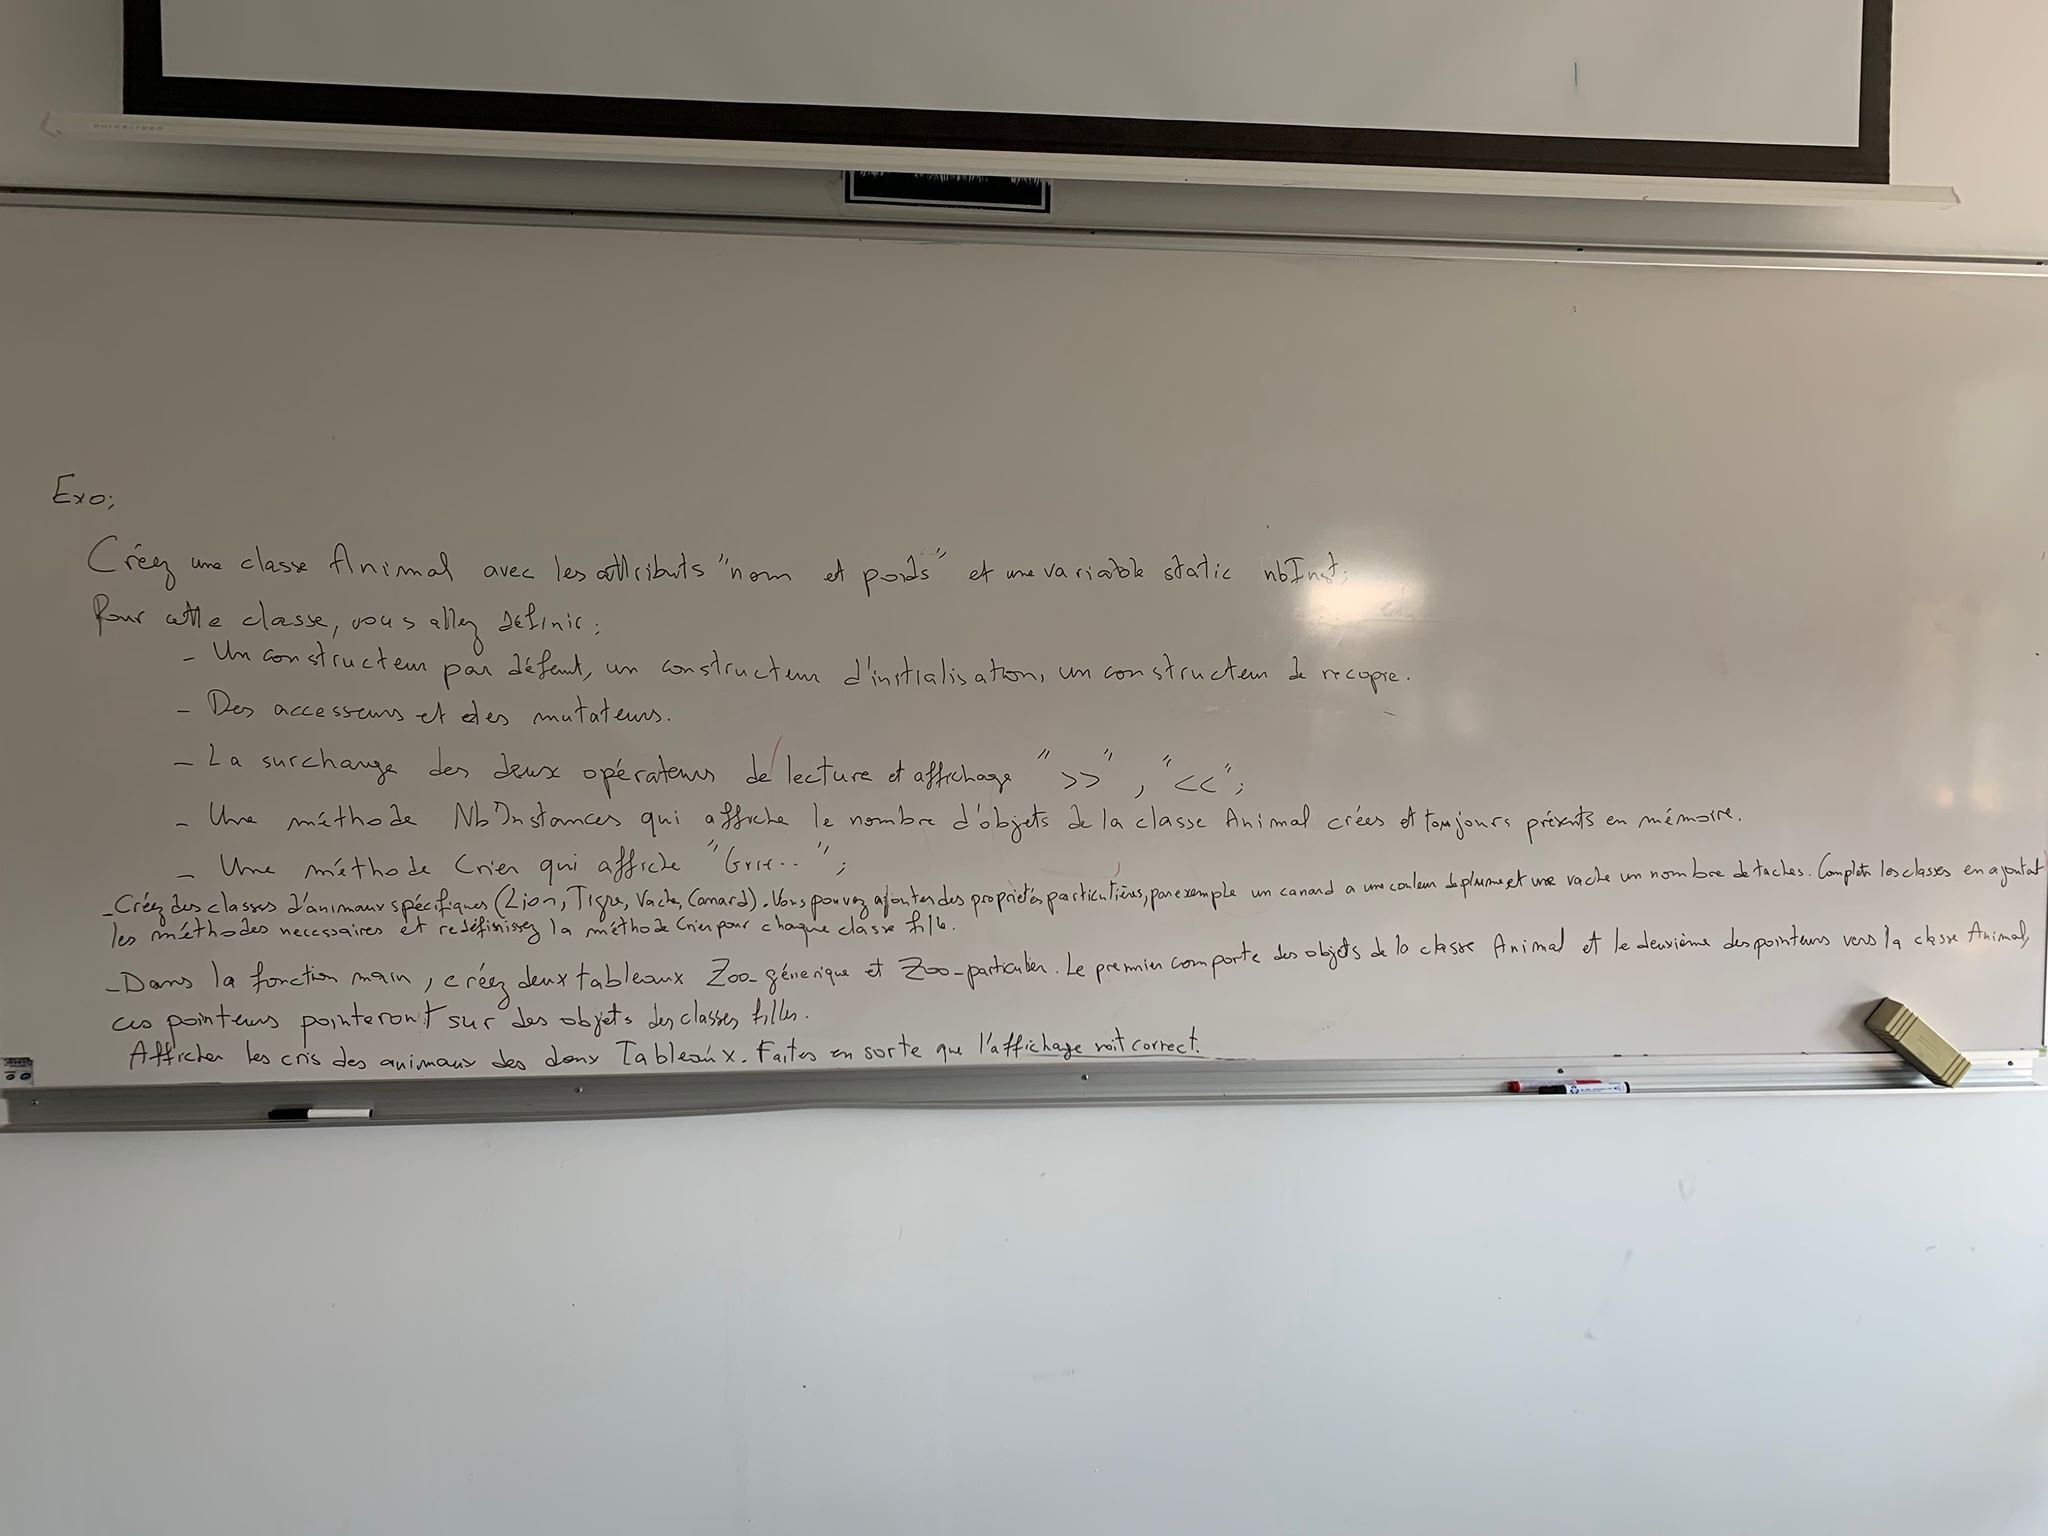 euroscreen
Exo:
Créez une classe Animal avec les attributs "nom et poids" et une variable static nbInst;
Pour cette classe, vous allez définir:
- Un constructeur par défaut, un constructeur d'initialisation, un constructeur de recopie.
- Des accesseurs et des mutateurs.
- La surchange des deux opérateurs de lecture et affichage ">>", "<<";
- Une méthode NbInstances qui affiche le nombre d'objets de la classe Animal crées et toujours présents en mémoire.
- Une méthode Crier qui affiche "Grrr..";
- Créez des classes d'animaux spécifiques (Lion, Tigre, Vache, Canard). Vous pouvez ajouter des propriétés particulières, par exemple un canard a une couleur de plume et une vache un nombre de taches. Complétez les classes en ajoutant
les méthodes necessaires et redéfinissez la méthode Crier pour chaque classe fille.
- Dans la fonction main, créez deux tableaux Zoo_génerique et Zoo_particulier. Le premier comporte des objets de la classe Animal et le deuxième des pointeurs vers la classe Animal,
ces pointeurs pointeront sur des objets des classes filles.
Afficher les cris des animaux des deux Tableaux. Faites en sorte que l'affichage soit correct.